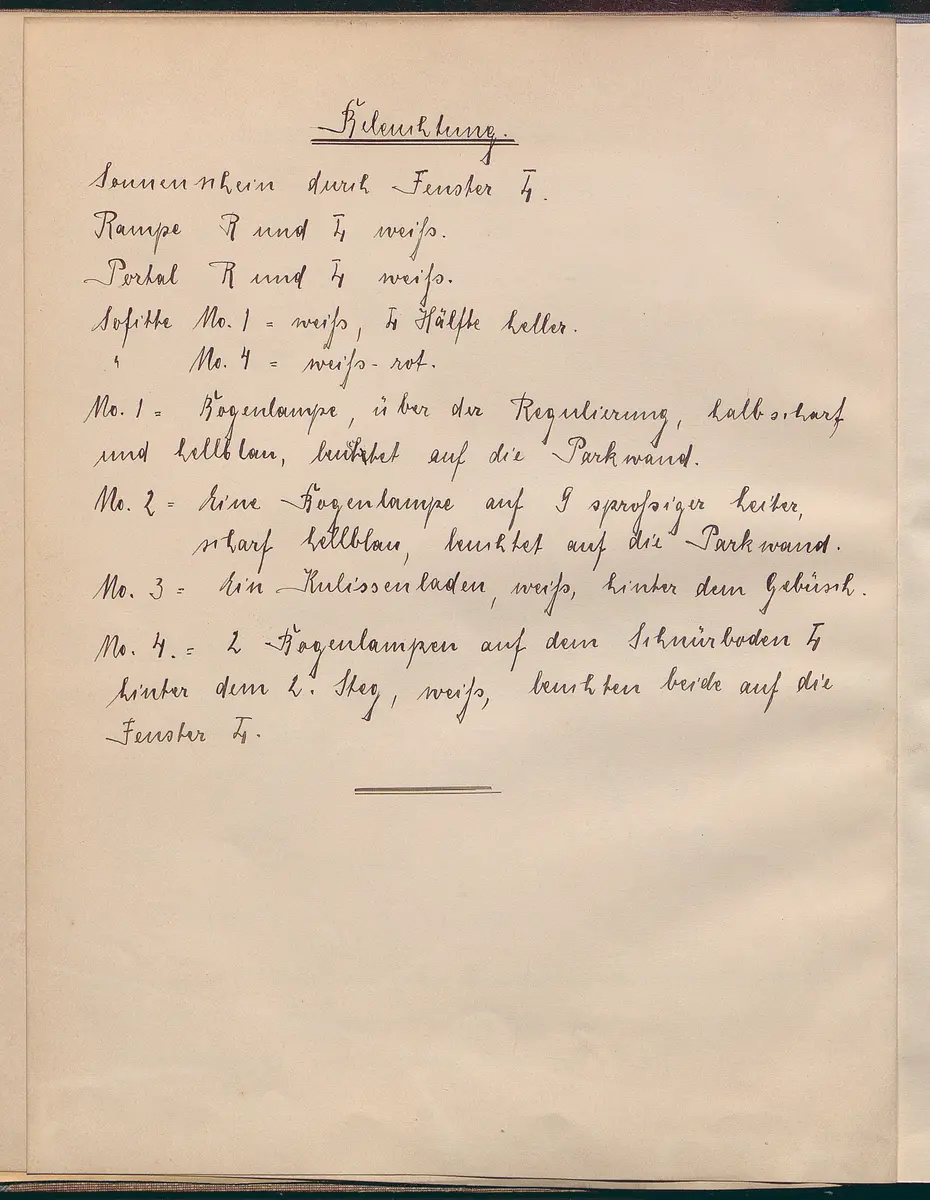 Beleuchtung.
Sonnenschein durch Fenster L.
Rampe R und L weiß.
Portal R und L weiß.
Sofitte No. 1 = weiß, L Hälfte heller.
" No. 4 = weiß-rot.
No. 1 = Bogenlampe, über der Regulierung, halbscharf
und hellblau, leuchtet auf die Parkwand.
No. 2 = Eine Bogenlampe auf 9 sproßiger Leiter,
scharf hellblau, leuchtet auf die Parkwand.
No. 3 = Ein Kulissenladen, weiß, hinter dem Gebüsch.
No. 4. = 2 Bogenlampen auf dem Schnürboden L
hinter dem 2. Steg, weiß, leuchten beide auf die
Fenster L.